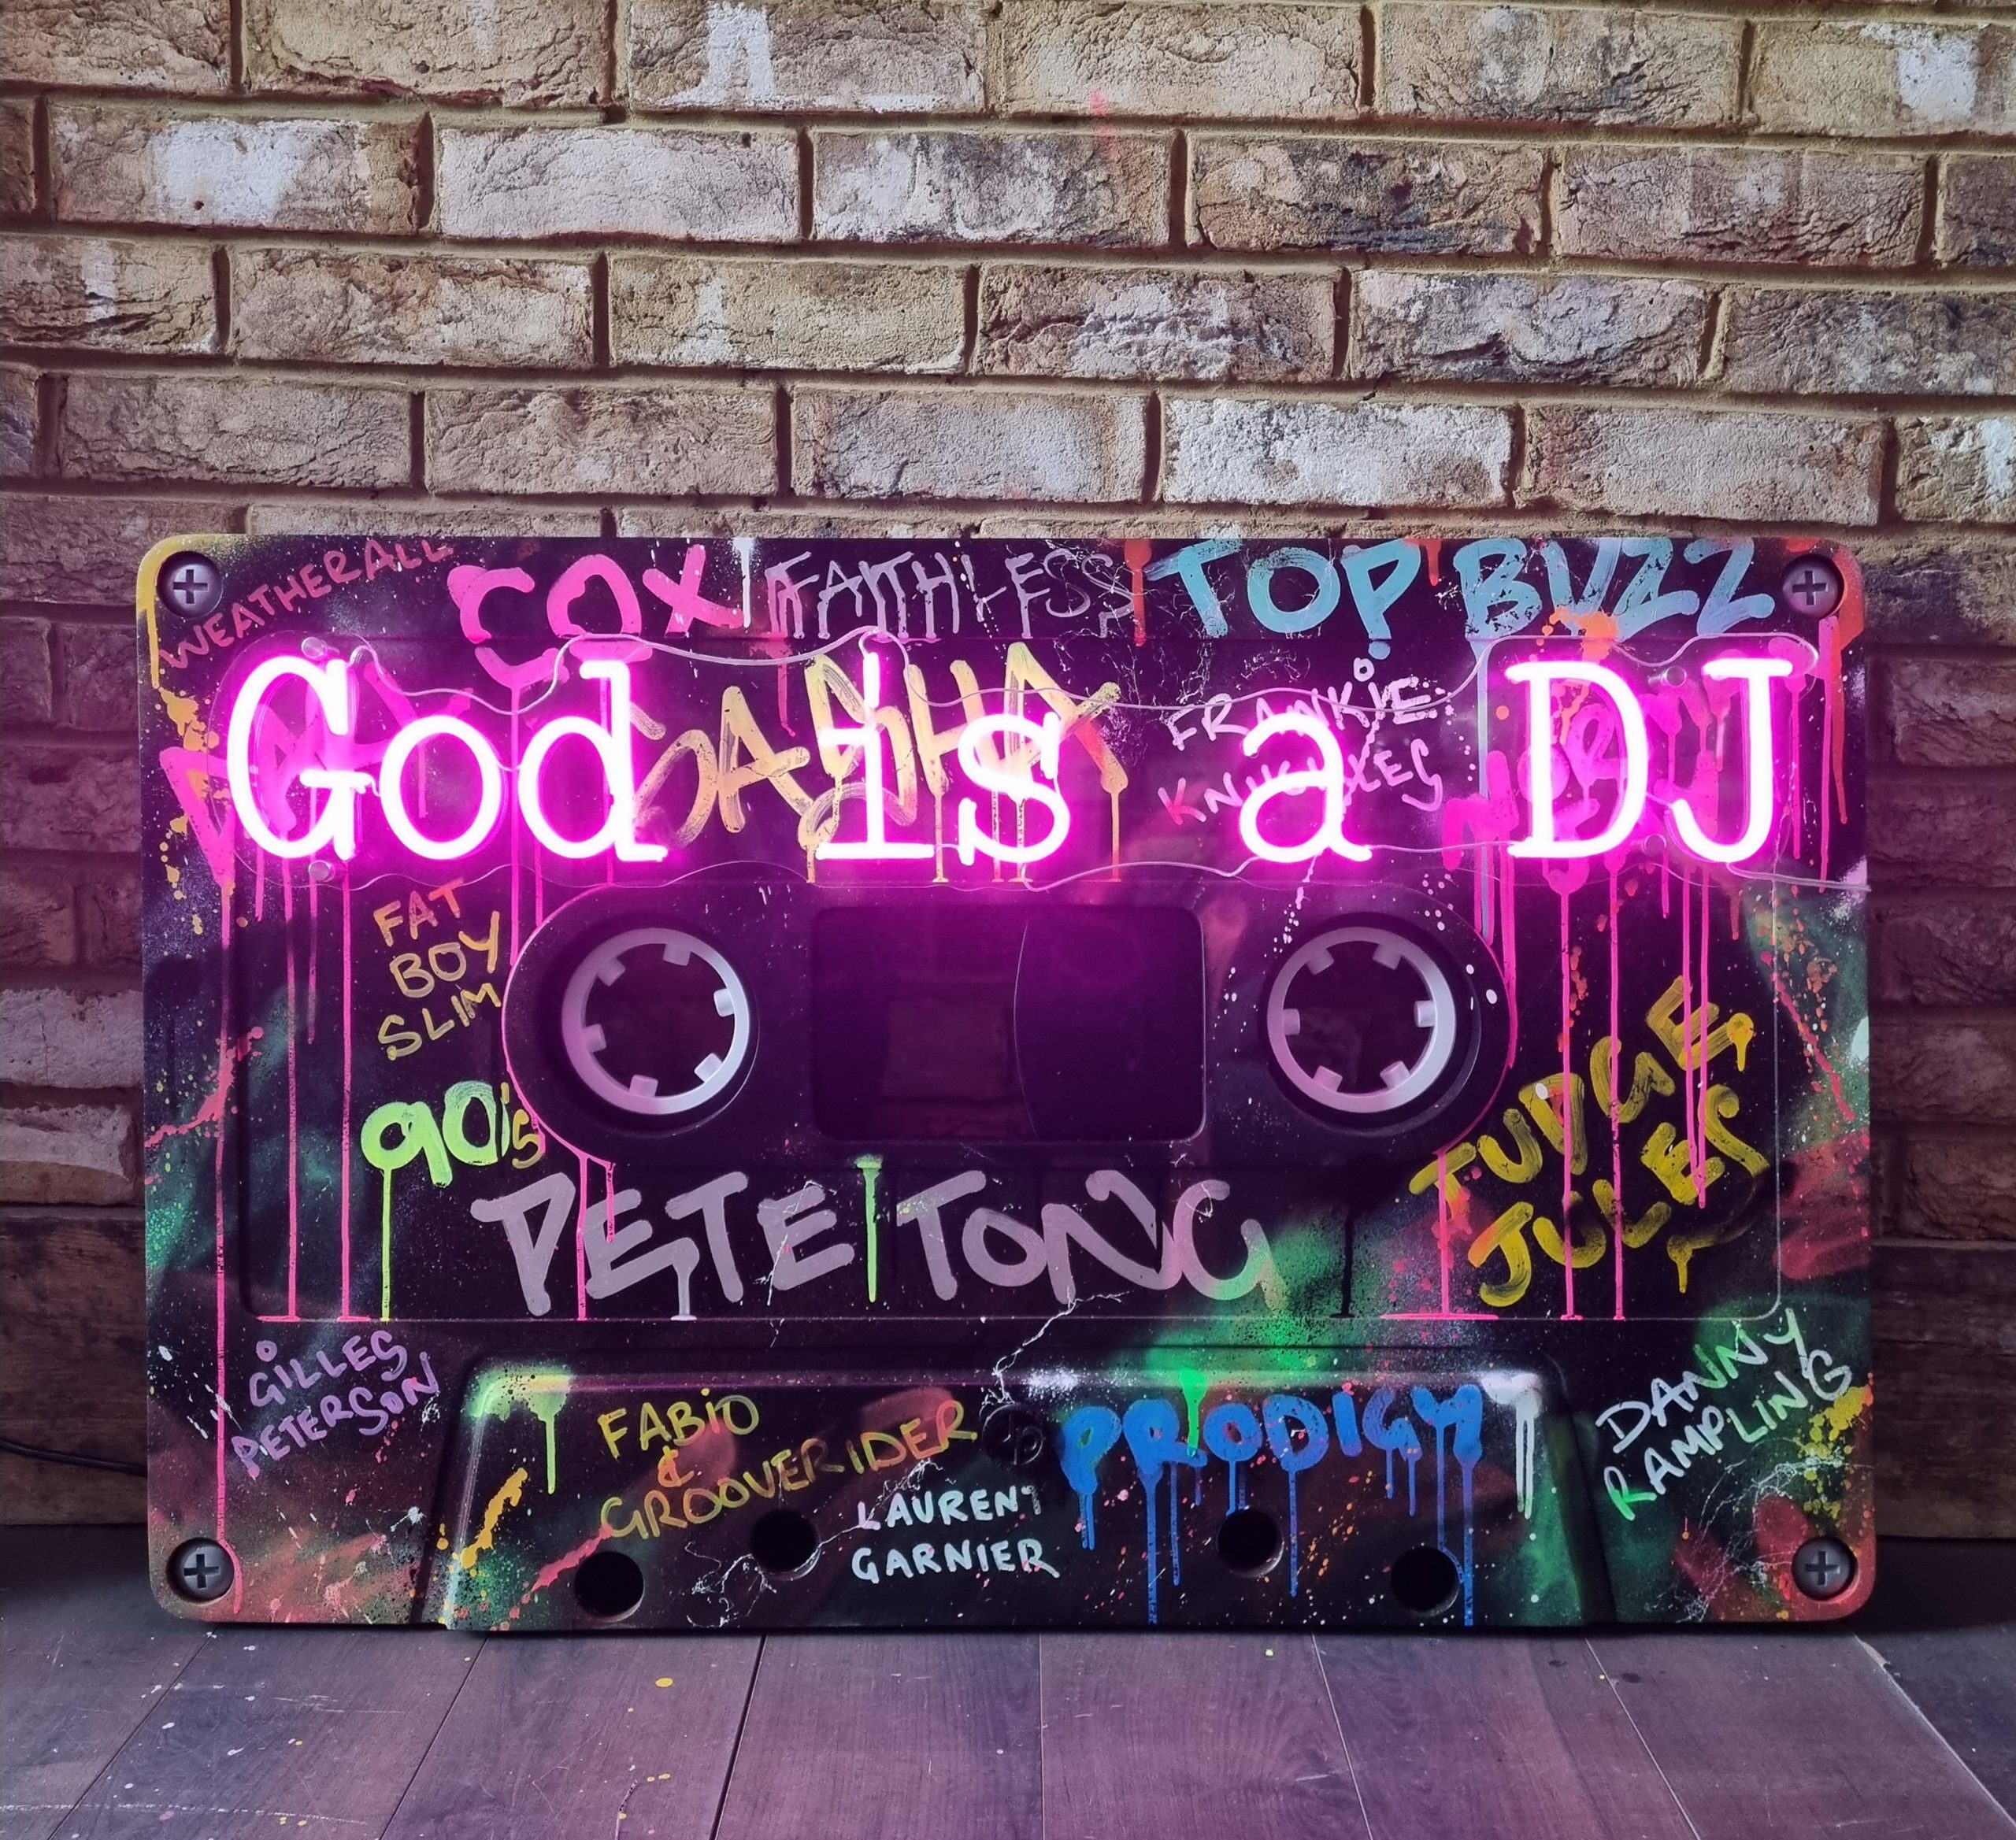 WEATHERALL
COX
FAITHLESS
TOP BUZZ
God is a DJ
SASHA
FRANKIE
KNUCKLES
FAT
BOY
SLIM
90's
PETE TONG
JUDGE
JULES
GILLES
PETERSON
FABIO
&
GROOVERIDER
LAURENT
GARNIER
PRODIGY
DANNY
RAMPLING